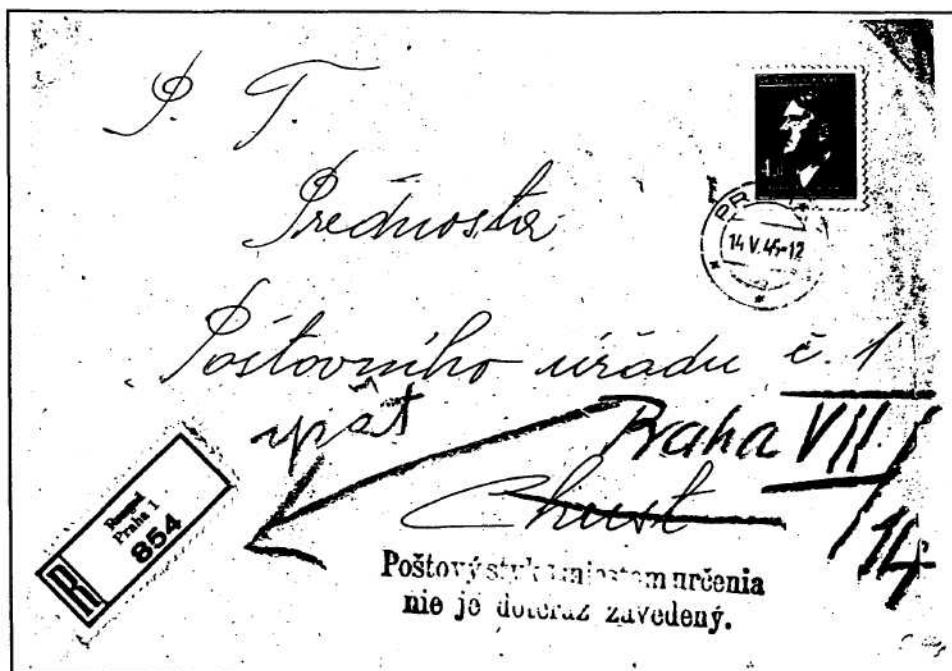 P. T.
Prědnosta
Poštovního úřadu č. 1
zpät
Praha VII.
Chust
14
PR
14 V. 45-12
R
Praha 1
854
Poštový styk s miestom určenia
nie je doteraz zavedený.